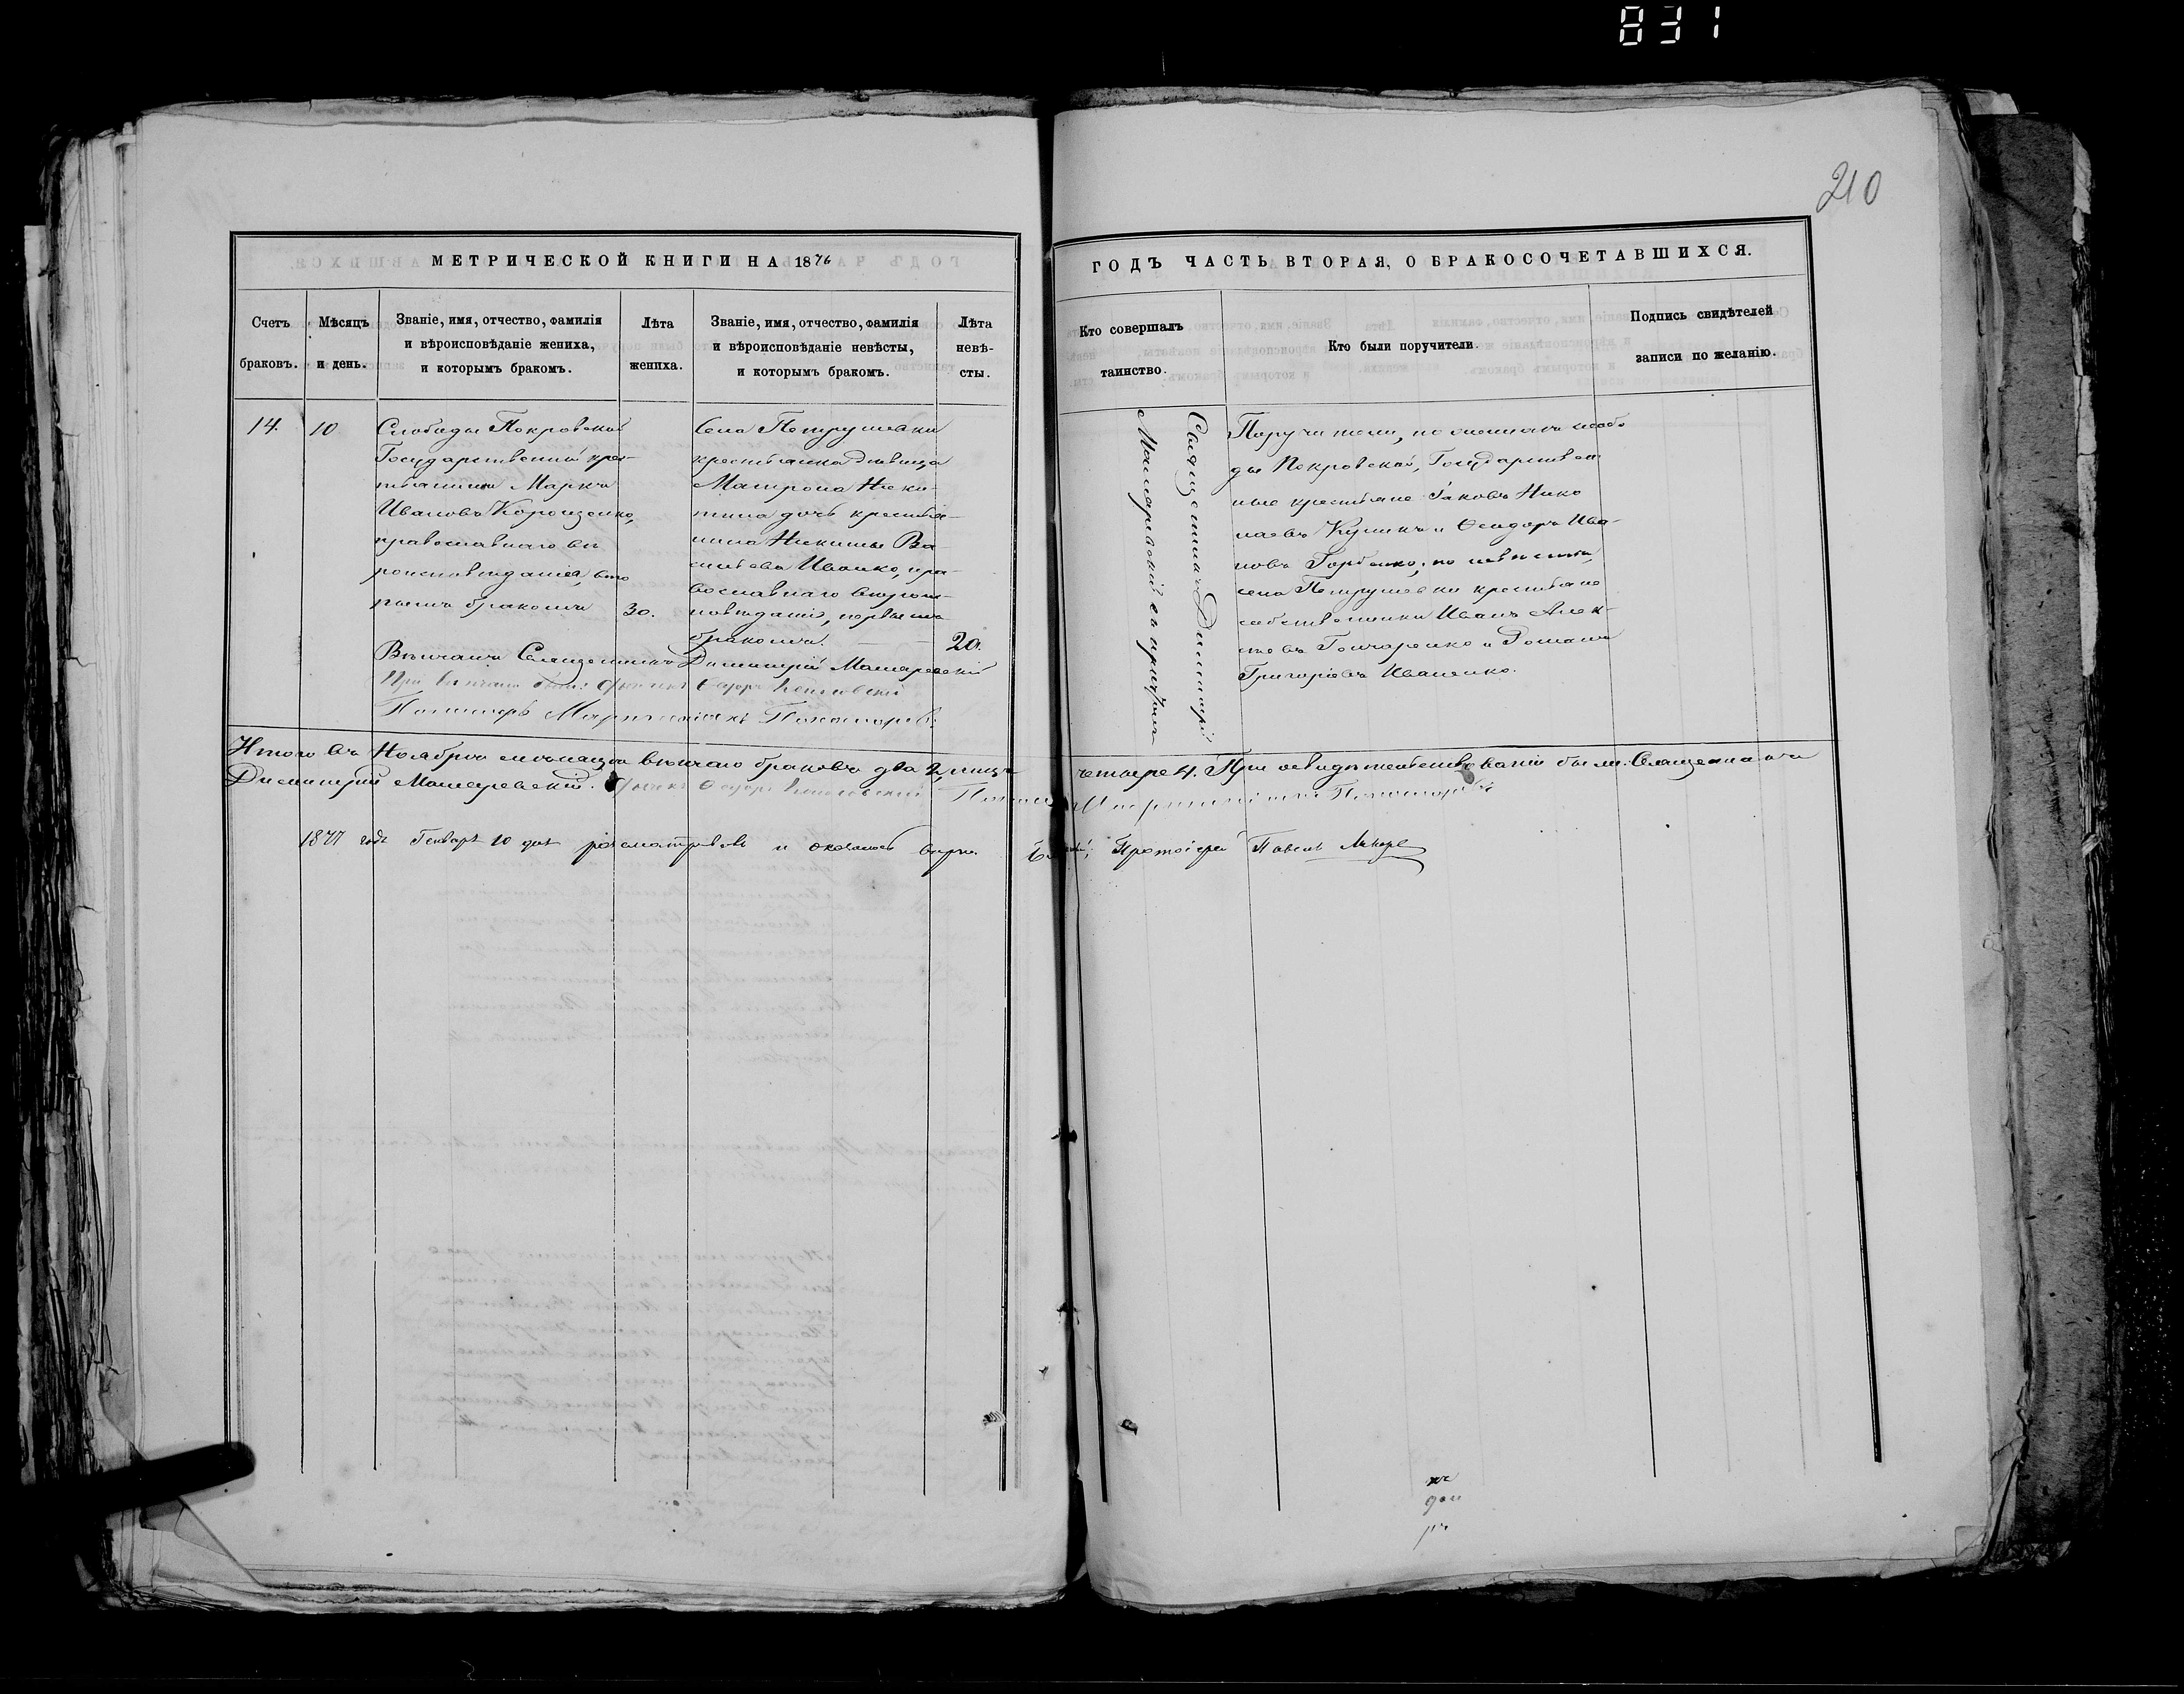 831
210
МЕТРИЧЕСКОЙ КНИГИ НА 1876
ГОДЪ ЧАСТЬ ВТОРАЯ, О БРАКОСОЧЕТАВШИХСЯ.
Счетъ браковъ.
Мѣсяцъ и день.
Званіе, имя, отчество, фамилія
и вѣроисповѣданіе жениха,
и которымъ бракомъ.
Лѣта
жениха.
Званіе, имя, отчество, фамилія
и вѣроисповѣданіе невѣсты,
и которымъ бракомъ.
Лѣта
невѣ-
сты.
Кто совершалъ
таинство.
Кто были поручители.
Подпись свидѣтелей
записи по желанію.
14.
10
Слободы Покровской
Государственный крес-
тьянинъ Маркъ
Ивановъ
православнаго вѣ
роисповѣданія, вто
рымъ бракомъ
30.
Села Петрушевки
крестьянка дѣвица
Матрона Ники-
тина дочь крестья-
нина Никиты Ва-
сильева Иванко, пра-
вославнаго вѣроис-
повѣданія, первымъ
бракомъ.
20.
Священникъ Димитрій
Мошаревскій съ причтомъ
Поручители, по женихѣ слобо
ды Покровской, Государствен
ные крестьяне Іаковъ Нико
лаевъ Куликъ и Ѳеодоръ Ива-
новъ Горбенко; по невѣстѣ,
села Петрушевки крестьяне
собственники Иванъ Алек-
сѣевъ Гончаренко и Романъ
Григорьевъ Иваненко.
Вѣнчалъ Священникъ Димитрій Мошаревскій
При вѣнчаніи были: Ѳеодоръ
Пономарь
Итого въ Ноябрѣ мѣсяцѣ вѣнчано браковъ два 2, лицъ четыре 4. При освидѣтельствованіи были: Священникъ
Димитрій Мошаревскій. Ѳеодоръ
1877 года Генваря 10 дня разсматривалъ и оказалось вѣрно. Протоіерей Павелъ